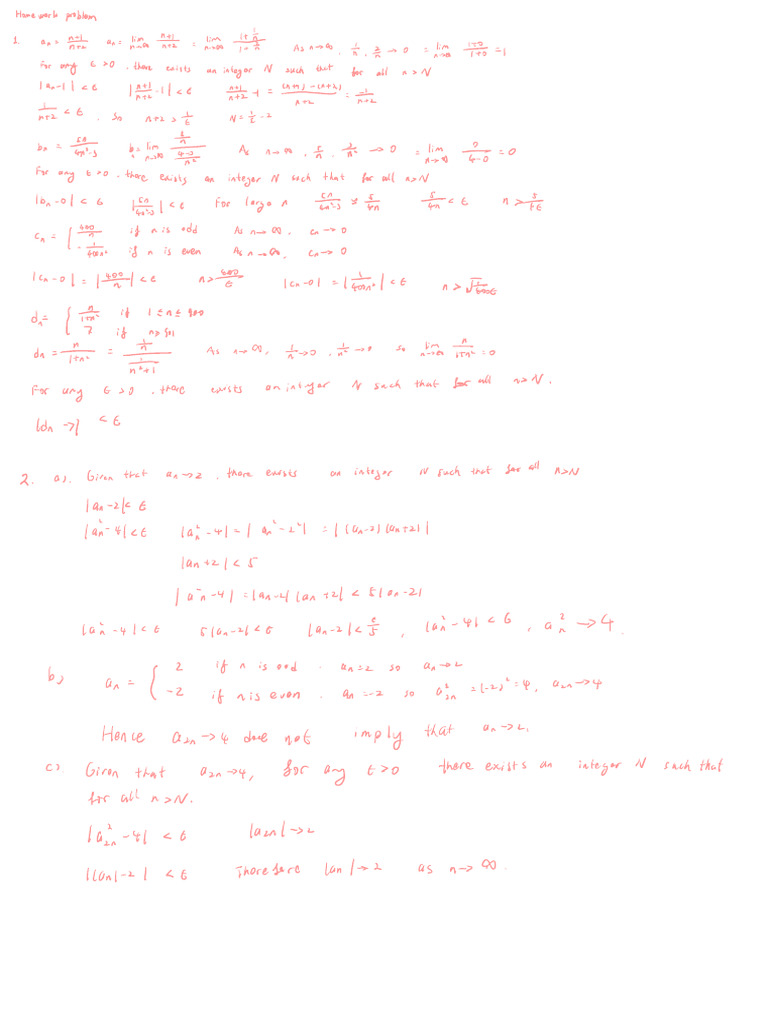 Homework problem
1. an = n+1/n+2 an = lim n→∞ n+1/n+2 = lim n→∞ 1+1/n / 1+2/n As n→∞, 1/n, 2/n → 0 = lim n→∞ 1+0/1+0 = 1
For any ε>0, there exists an integer N such that for all n>N
|an-1| < ε |n+1/n+2 - 1| < ε n+1/n+2 - 1 = (n+1)-(n+2)/n+2 = -1/n+2
1/n+2 < ε, so n+2 > 1/ε N = 1/ε - 2
bn = 5n/4n²-3 bn = lim n→∞ 5/n / 4-3/n² As n→∞, 5/n, 3/n² → 0 = lim n→∞ 0/4-0 = 0
For any ε>0, there exists an integer N such that for all n>N
|bn-0| < ε |5n/4n²-3| < ε For large n 5n/4n²-3 ≈ 5/4n 5/4n < ε n > 5/4ε
cn = { 400/n if n is odd As n→∞, cn→0
-1/400n² if n is even As n→∞, cn→0
|cn-0| = |400/n| < ε n > 400/ε |cn-0| = |1/400n²| < ε n > √1/400ε
dn = { n/1+n² if 1≤n≤900
7 if n≥901
dn = n/1+n² = 1/n / 1/n²+1 As n→∞, 1/n→0, 1/n²→0 so lim n→∞ n/1+n² = 0
For any ε>0, there exists an integer N such that for all n>N.
|dn-7| < ε
2. a). Given that an→2, there exists an integer N such that for all n>N
|an-2| < ε
|an²-4| < ε |an²-4| = |an²-2²| = |(an-2)(an+2)|
|an+2| < 5
|an²-4| = |an-2||an+2| < 5|an-2|
|an²-4| < ε 5|an-2| < ε |an-2| < ε/5, |an²-4| < ε, an² → 4.
b) an = { 2 if n is odd. an=2 so an→2
-2 if n is even. an=-2 so a2n² = (-2)² = 4, a2n→4
Hence a2n→4 does not imply that an→2.
c). Given that a2n→4, for any ε>0 there exists an integer N such that
for all n>N.
|a2n²-4| < ε |a2n|→2
||an|-2| < ε Therefore |an|→2 as n→∞.